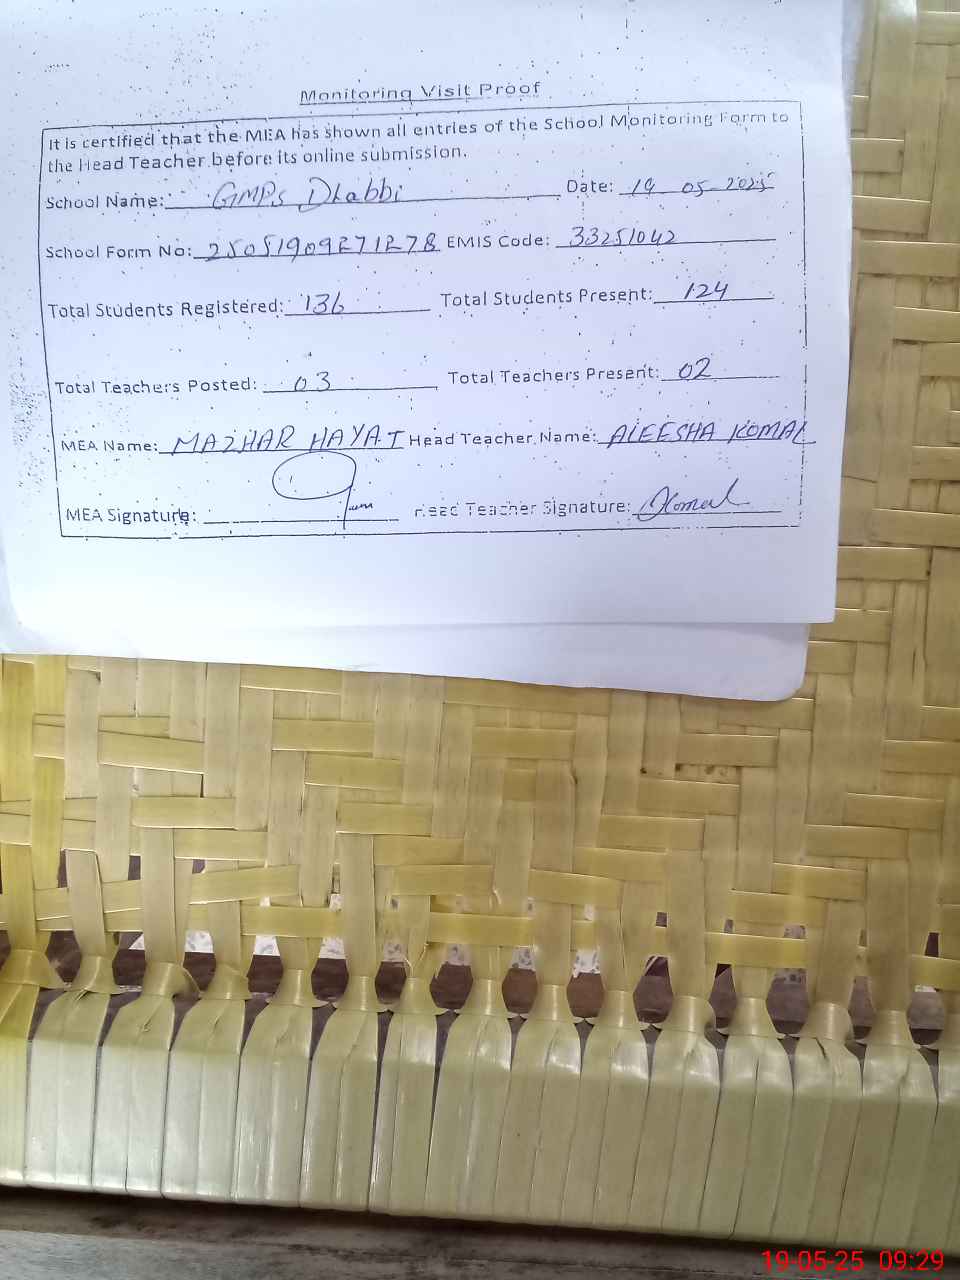 Monitoring Visit Proof
It is certified that the MEA has shown all entries of the School Monitoring Form to
the Head Teacher before its online submission.
School Name: GMPS Dhabbi Date: 19-05-2025
School Form No: 25051909271278 EMIS Code: 33251042
Total Students Registered: 136 Total Students Present: 124
Total Teachers Posted: 03 Total Teachers Present: 02
MEA Name: MAZHAR HAYAT Head Teacher Name: ALEESHA KOMAL
MEA Signature: Head Teacher Signature: Komal
19-05-25 09:29